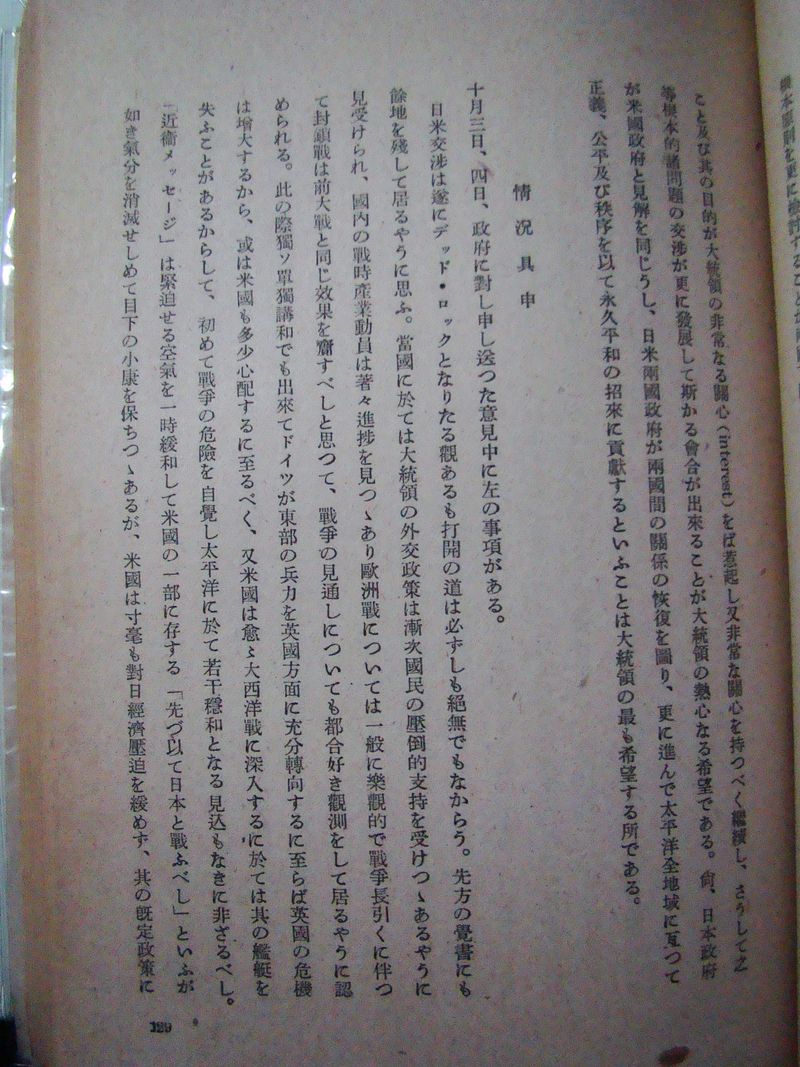 こと及び其の目的が大統領の非常なる關心(interest)をば惹起し又非常な關心を持つべく繼續し、さうして之
等根本的諸問題の交渉が更に發展して斯かる會合が出來ることが大統領の熱心なる希望である。尙、日本政府
が米國政府と見解を同じうし、日米兩國政府が兩國間の關係の恢復を圖り、更に進んで太平洋全地域に亙つて
正義、公平及び秩序を以て永久平和の招來に貢獻するといふことは大統領の最も希望する所である。
情況具申
十月三日、四日、政府に對し申し送つた意見中に左の事項がある。
日米交渉は遂にデッド・ロックとなりたる觀あるも打開の道は必ずしも絕無でもなからう。先方の覺書にも
餘地を殘して居るやうに思ふ。當國に於ては大統領の外交政策は漸次國民の壓倒的支持を受けつゝあるやうに
見受けられ、國內の戰時產業動員は著々進捗を見つゝあり歐洲戰については一般に樂觀的で戰爭長引くに伴つ
て封鎖戰は前大戰と同じ效果を齎すべしと思つて、戰爭の見通しについても都合好き觀測をして居るやうに認
められる。此の際獨ソ單獨講和でも出來てドイツが東部の兵力を英國方面に充分轉向するに至らば英國の危機
は增大するから、或は米國も多少心配するに至るべく、又米國は愈〻大西洋戰に深入するに於ては其の艦艇を
失ふことがあるからして、初めて戰爭の危險を自覺し太平洋に於て若干穩和となる見込もなきに非ざるべし。
「近衞メッセージ」は緊迫せる空氣を一時緩和して米國の一部に存する「先づ以て日本と戰ふべし」といふが
如き氣分を消滅せしめて目下の小康を保ちつゝあるが、米國は寸毫も對日經濟壓迫を緩めず、其の旣定政策に
129